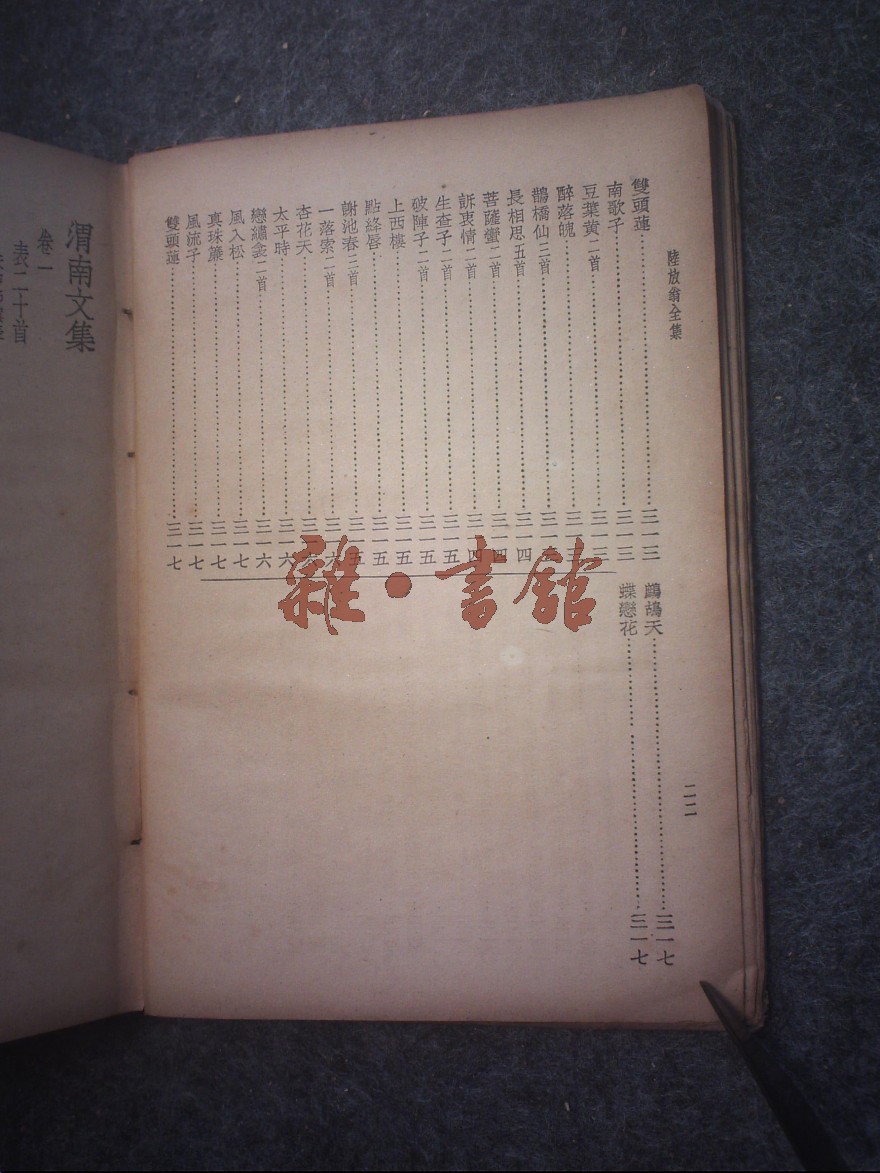 陸放翁全集
二二
雙頭蓮……三一三
南歌子……三一三
豆葉黄二首……三一三
醉落魄……三一三
鵲橋仙三首……三一
長相思五首……三一四
菩薩蠻二首……三一四
訴衷情二首……三一四
生查子二首……三一五
破陣子二首……三一五
上西樓……三一五
點絳唇……三一五
謝池春三首……三一五
一落索二首……三一六
杏花天……三一六
太平時……三一六
戀繡衾二首……三一六
風入松……三一七
真珠簾……三一七
風流子……三一七
雙頭蓮……三一七
鷓鴣天……三一七
蝶戀花……三一七
渭南文集
卷一
表二十首
雜·書館